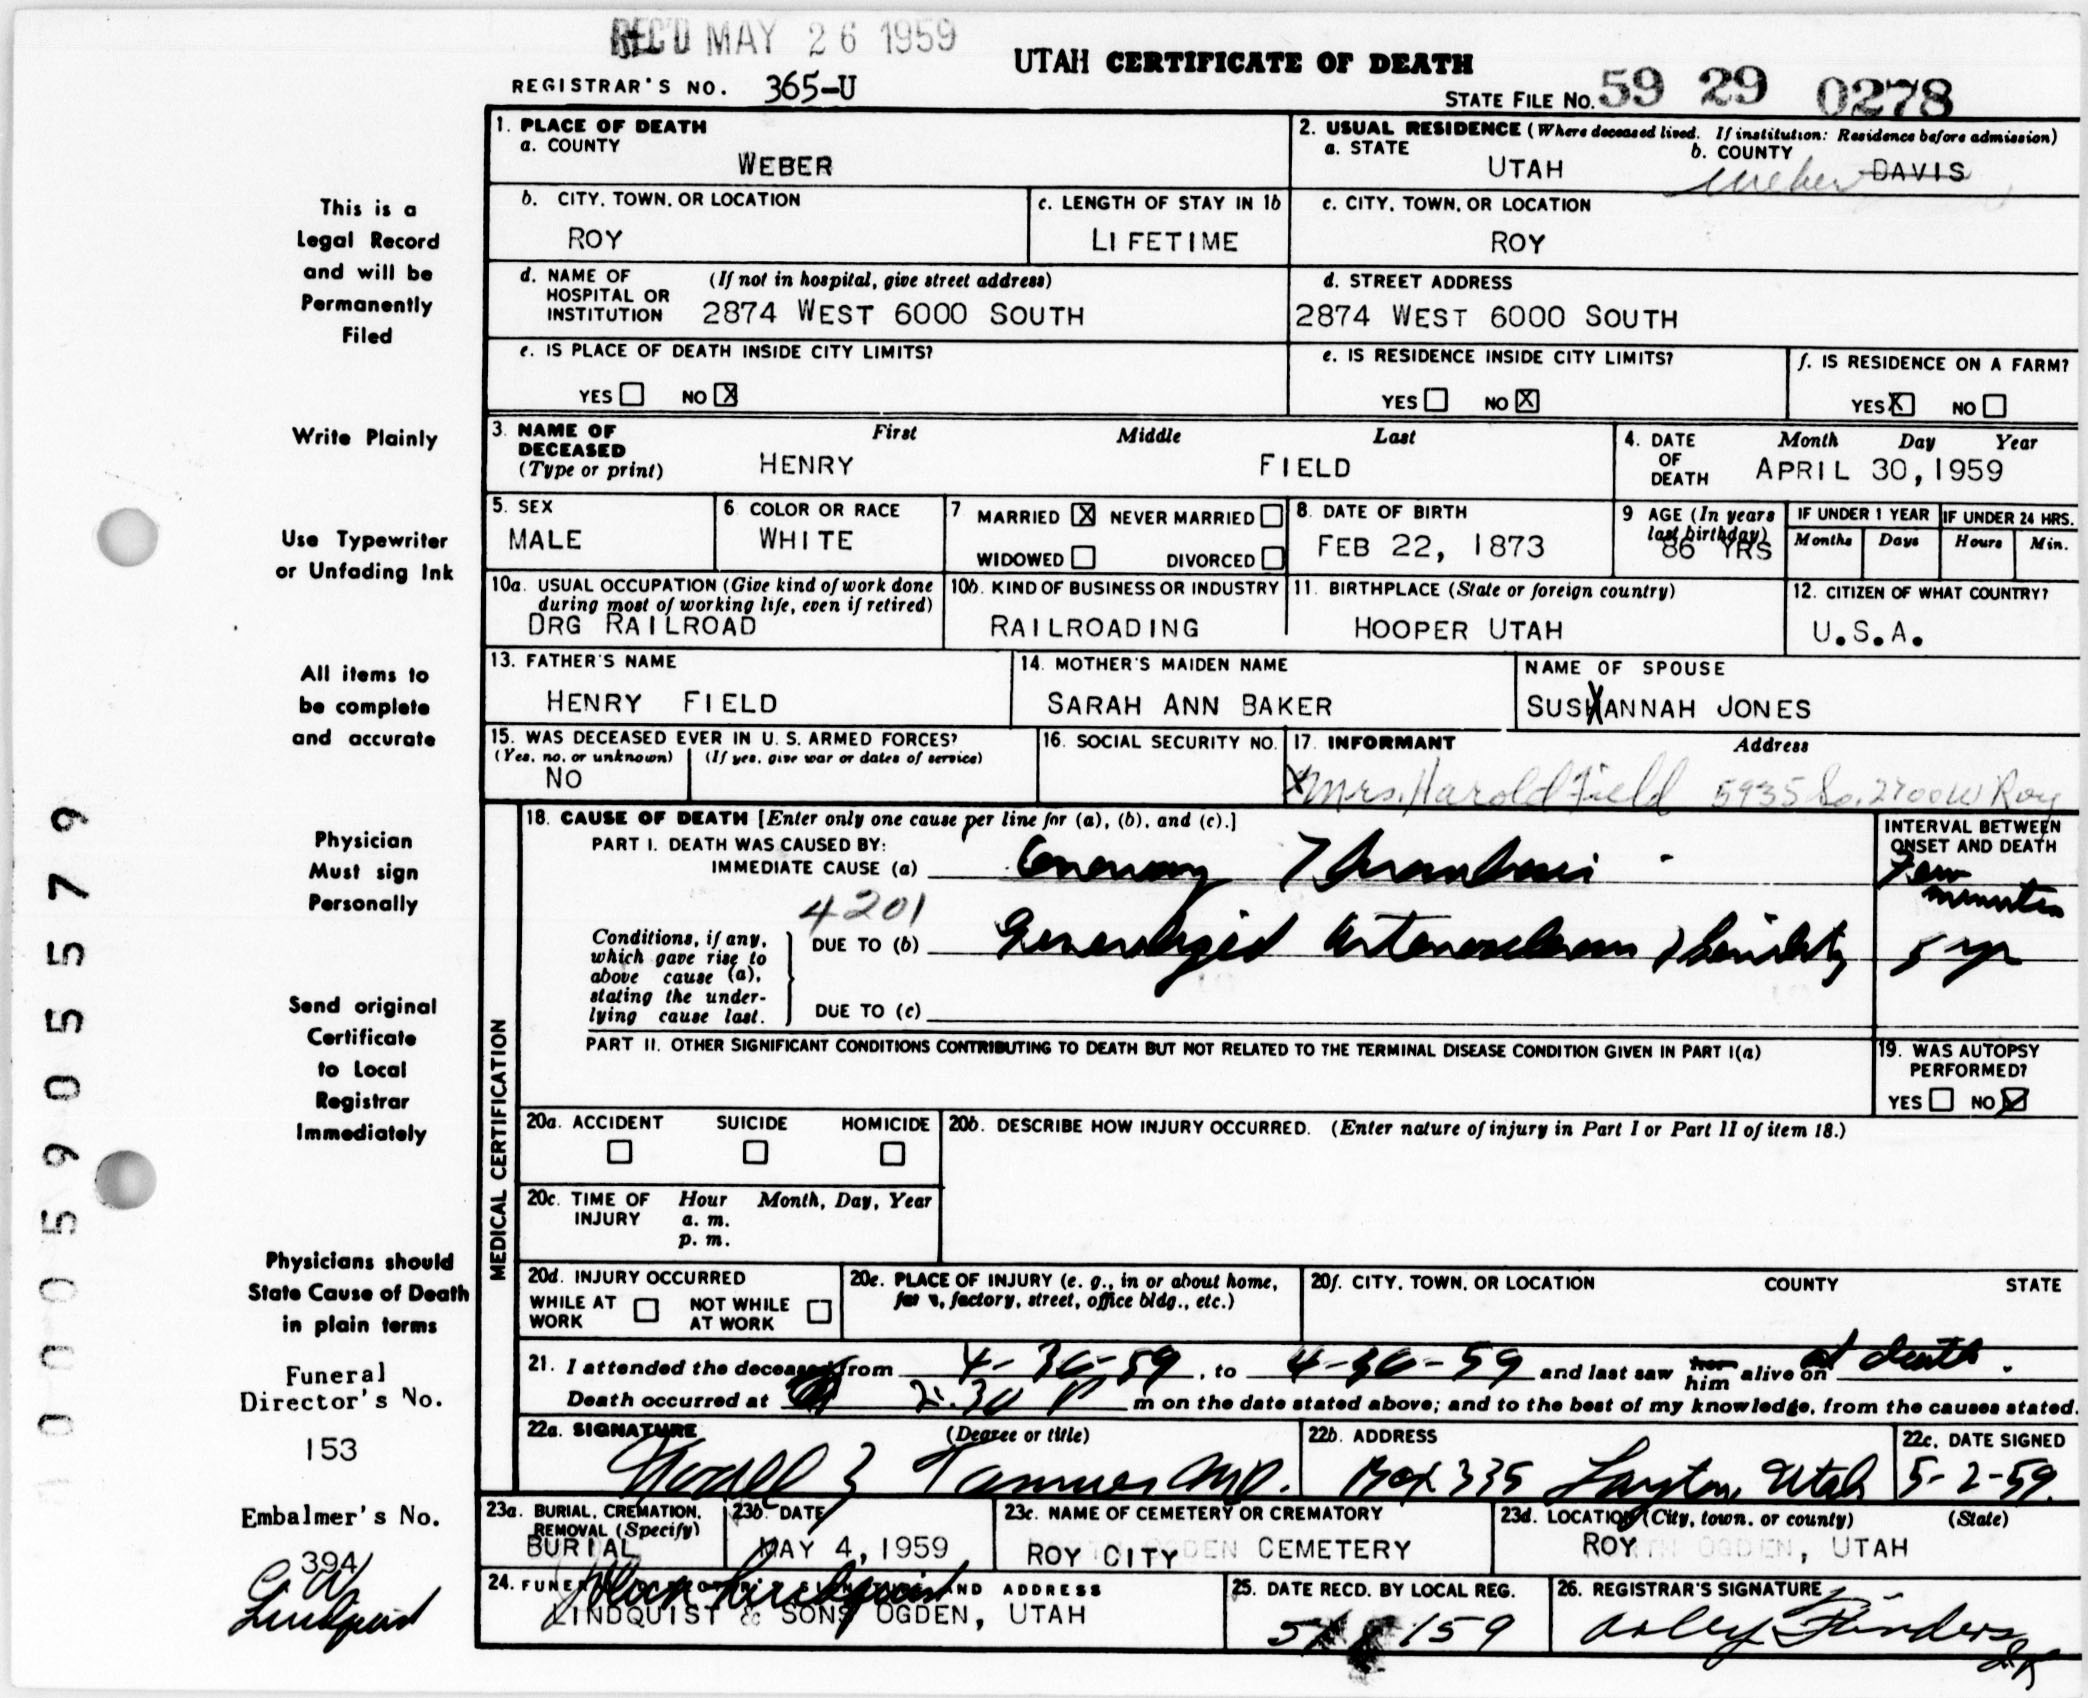 REC'D MAY 26 1959
UTAH CERTIFICATE OF DEATH
REGISTRAR'S NO. 365-U
STATE FILE NO. 59 29 0278
1. PLACE OF DEATH
a. COUNTY
WEBER
2. USUAL RESIDENCE (Where deceased lived. If institution: Residence before admission)
a. STATE
UTAH
b. COUNTY
Weber DAVIS
b. CITY, TOWN, OR LOCATION
ROY
c. LENGTH OF STAY IN 1b
LIFETIME
c. CITY, TOWN, OR LOCATION
ROY
d. NAME OF HOSPITAL OR INSTITUTION
(If not in hospital, give street address)
2874 WEST 6000 SOUTH
d. STREET ADDRESS
2874 WEST 6000 SOUTH
e. IS PLACE OF DEATH INSIDE CITY LIMITS?
YES NO X
e. IS RESIDENCE INSIDE CITY LIMITS?
YES NO X
f. IS RESIDENCE ON A FARM?
YES X NO
3. NAME OF DECEASED (Type or print)
First Middle Last
HENRY FIELD
4. DATE OF DEATH
Month Day Year
APRIL 30, 1959
5. SEX
MALE
6. COLOR OR RACE
WHITE
7 MARRIED X NEVER MARRIED
WIDOWED DIVORCED
8. DATE OF BIRTH
FEB 22, 1873
9 AGE (In years last birthday)
86 YRS
IF UNDER 1 YEAR
Months Days
IF UNDER 24 HRS.
Hours Min.
10a. USUAL OCCUPATION (Give kind of work done during most of working life, even if retired)
DRG RAILROAD
10b. KIND OF BUSINESS OR INDUSTRY
RAILROADING
11. BIRTHPLACE (State or foreign country)
HOOPER UTAH
12. CITIZEN OF WHAT COUNTRY?
U.S.A.
13. FATHER'S NAME
HENRY FIELD
14. MOTHER'S MAIDEN NAME
SARAH ANN BAKER
NAME OF SPOUSE
SUSXANNAH JONES
15. WAS DECEASED EVER IN U. S. ARMED FORCES?
(Yes, no, or unknown) (If yes, give war or dates of service)
NO
16. SOCIAL SECURITY NO.
17. INFORMANT Address
X Mrs. Harold Field 5935 So. 2700 W Roy
MEDICAL CERTIFICATION
18. CAUSE OF DEATH [Enter only one cause per line for (a), (b), and (c).]
PART I. DEATH WAS CAUSED BY:
IMMEDIATE CAUSE (a) Coronary Thrombosis
4201
Conditions, if any, which gave rise to above cause (a), stating the underlying cause last.
DUE TO (b) Generalized Arteriosclerosis & Senility
DUE TO (c)
INTERVAL BETWEEN ONSET AND DEATH
Few minutes
5 yr
PART II. OTHER SIGNIFICANT CONDITIONS CONTRIBUTING TO DEATH BUT NOT RELATED TO THE TERMINAL DISEASE CONDITION GIVEN IN PART I(a)
19. WAS AUTOPSY PERFORMED?
YES NO
20a. ACCIDENT SUICIDE HOMICIDE
20b. DESCRIBE HOW INJURY OCCURRED. (Enter nature of injury in Part I or Part II of item 18.)
20c. TIME OF INJURY
Hour Month, Day, Year
a. m.
p. m.
20d. INJURY OCCURRED
WHILE AT WORK NOT WHILE AT WORK
20e. PLACE OF INJURY (e. g., in or about home, farm, factory, street, office bldg., etc.)
20f. CITY, TOWN, OR LOCATION COUNTY STATE
21. I attended the deceased from 4-30-59, to 4-30-59 and last saw her him alive on at death.
Death occurred at 2:30 P m on the date stated above; and to the best of my knowledge, from the causes stated.
22a. SIGNATURE (Degree or title)
Tanner M.D.
22b. ADDRESS
Box 335 Layton, Utah
22c. DATE SIGNED
5-2-59.
23a. BURIAL, CREMATION, REMOVAL (Specify)
BURIAL
23b. DATE
MAY 4, 1959
23c. NAME OF CEMETERY OR CREMATORY
ROY CITY CEMETERY
23d. LOCATION (City, town, or county) (State)
ROY, UTAH
24. AND ADDRESS
LINDQUIST & SONS OGDEN, UTAH
25. DATE RECD. BY LOCAL REG.
26. REGISTRAR'S SIGNATURE
Flinders
This is a
Legal Record
and will be
Permanently
Filed
Write Plainly
Use Typewriter
or Unfading Ink
All items to
be complete
and accurate
Physician
Must sign
Personally
Send original
Certificate
to Local
Registrar
Immediately
Physicians should
State Cause of Death
in plain terms
Funeral
Director's No.
153
Embalmer's No.
394
Lindquist
0005905579